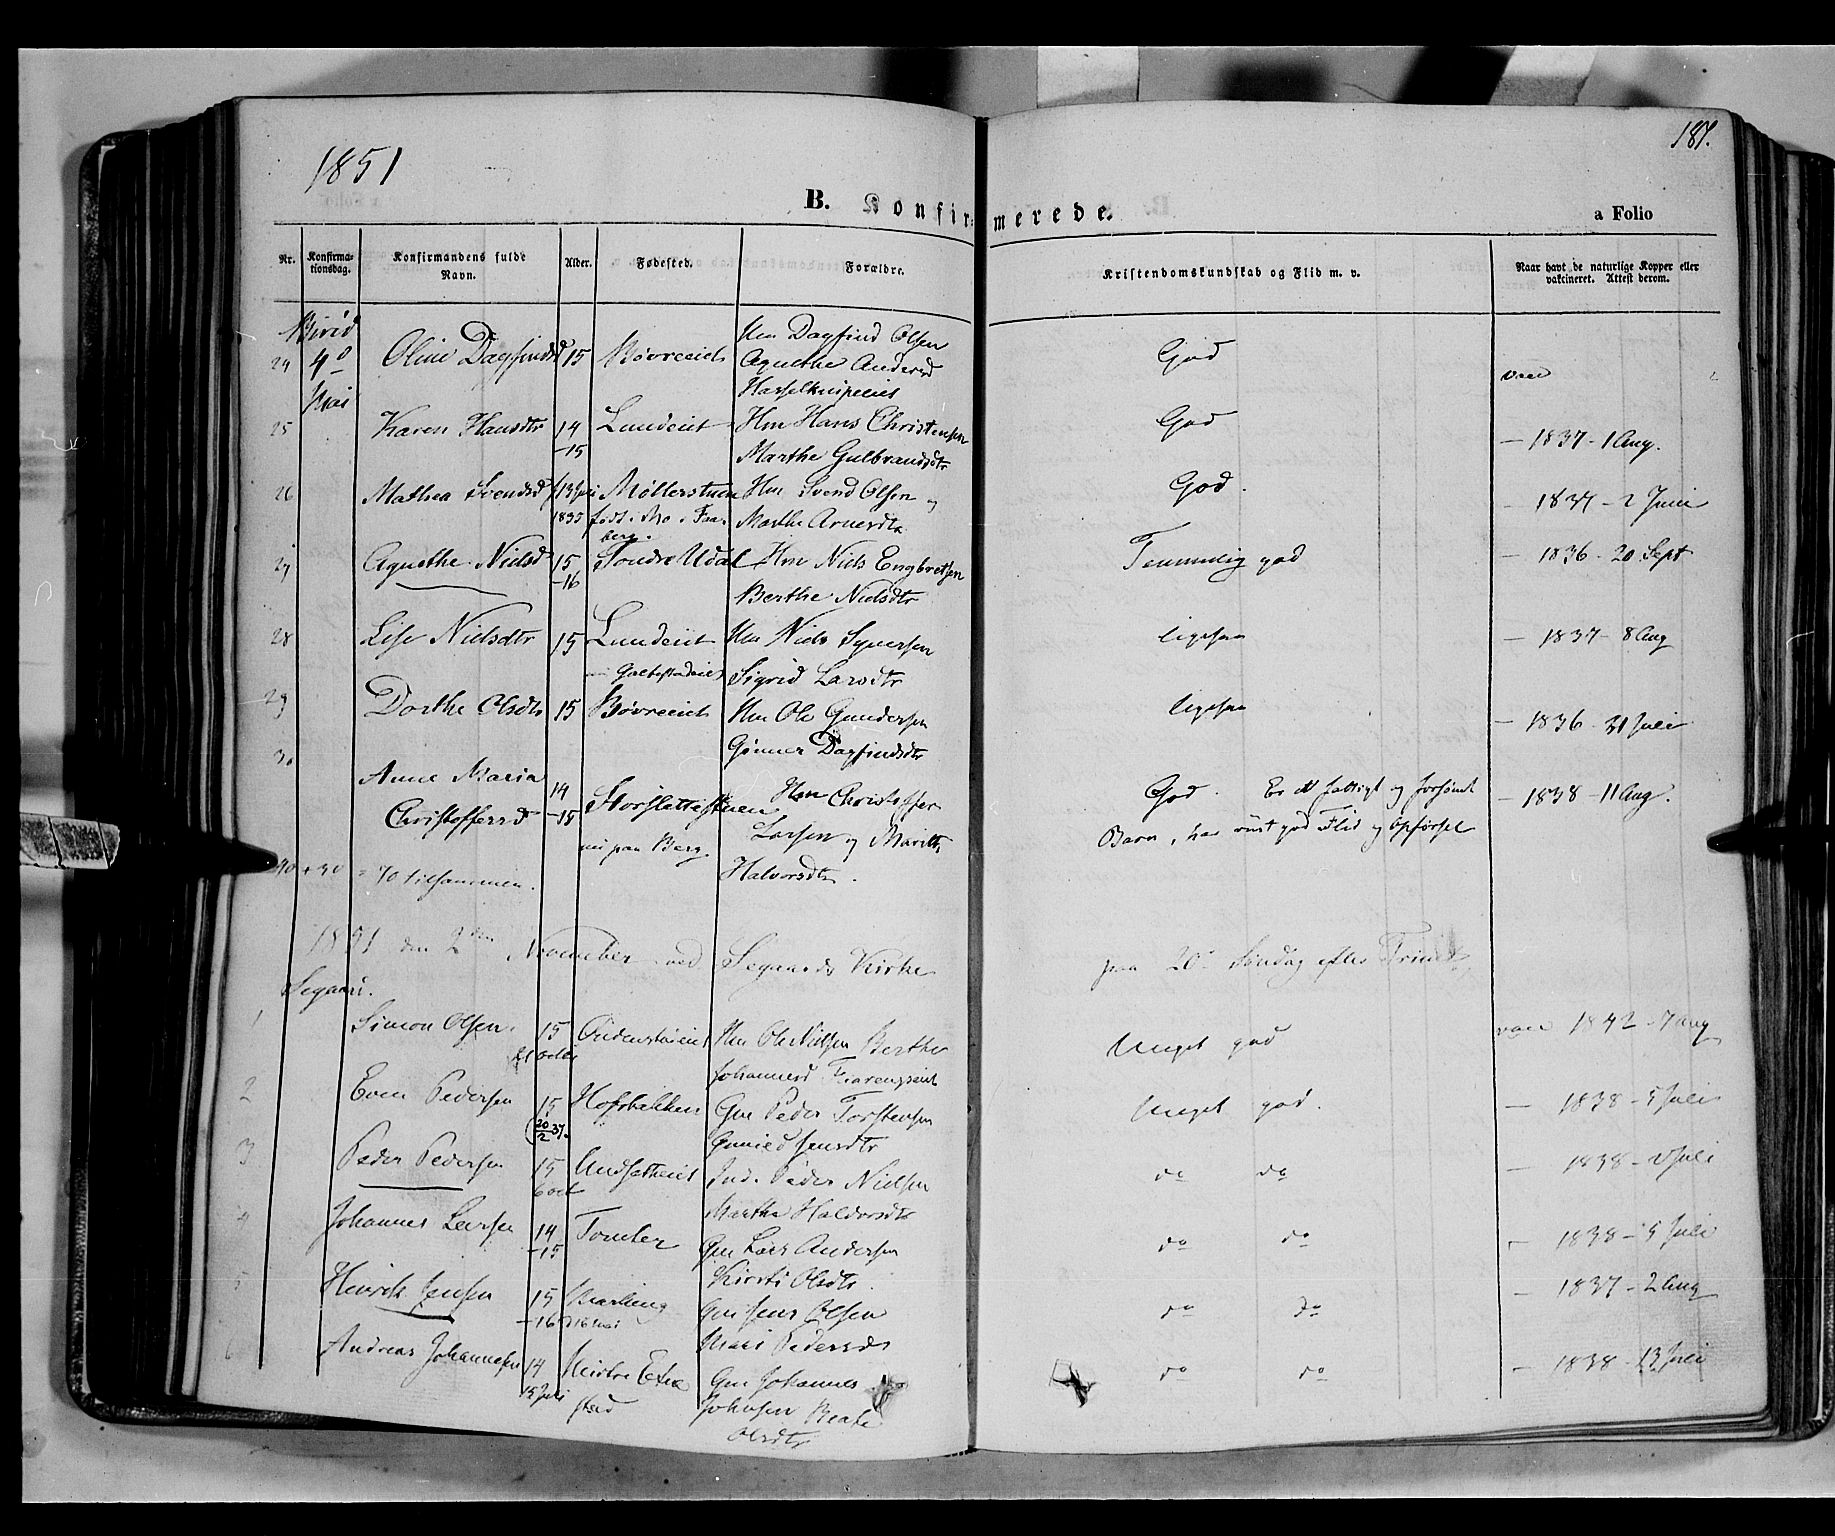 1851
187.
B. Konfirmerede.
a Folio
Nr.
Konfirmationsdag.
Konfirmandens fulde Navn.
Alder.
Fødested.
Forældre.
Kristendomskundskab og Flid m. v.
Naar havt de naturlige Kopper eller vaktineret. Attest derom.
Birid
24 4de Oline Dagfindsd 15 Bövreeiet Hm Dagfind Olsen God vacc
Agnethe Andersd
Mai Hasselknipeiet
25 Karen Hansdtr 14 Lundeiet Hm Hans Christensen God — 1837 - 1 Aug.
-15 Marthe Gulbrandsdtr
26 Mathea Svendsd Møllerstuen Hm Svend Olsen og God. — 1837 - 2 Juni
1835 født i Mo i Faa- Marthe Arnesdtr
berg.
27 Agnethe Nielsd 15 Söndre Udal Hm Niels Engbretsen Temmelig god — 1836 - 20 Sept
-16 Berthe Nielsdtr
28 Lise Nielsdtr 15 Lundeiet Hm Niels Syversen ligesaa — 1837 - 8 Aug
Sigrid Larsdtr
29 Dorthe Olsdtr 15 Bövreeiet Hm Ole Gundersen ligesaa — 1836 - 31 Juli
Gunner Dagfindsdtr
30 Anne Maria 14 Hm Christoffer God. Er et fattigt og forsömt — 1838 - 11 Aug.
Christoffersd -15 Storslettestuen Larsen og Marith Barn, har viist god Flid og Opförsel
nu paa Berg Halvorsdtr.
40 + 30 = 70 tilsammen.
1851 den 2den November ved Segaards Kirke paa 20de Söndag efter Trinit.
Segaard.
1 Simon Olsen. 15 Hm Ole Nielsen Berthe Meget god vacc 1842 - 7 Aug
Johannesd
2 Even Pedersen 15 Hofsbakken Gm Peder Torstensen Meget god. — 1838 - 5 Juli
20/2 37. Jensdtr
3 Peder Pedersen 15 Ind. Peder Nielsen do do — 1838 - Juli
6 oct Marthe Haldorsdtr
4 Johannes Larsen 14 Tomler Gm Lars Andersen do do — 1838 - 5 Juli
-15 Kirsti Olsdtr.
5 Hinrik Jensen 15 Gm Jens Olsen do do — 1837 - 2 Aug
-16 Mari Pedersdtr
6 Andreas Johannesen 14 Gm Johannes do do — 1838 - 13 Juli
15 Juli stad Johnsen Beate
Olsdtr